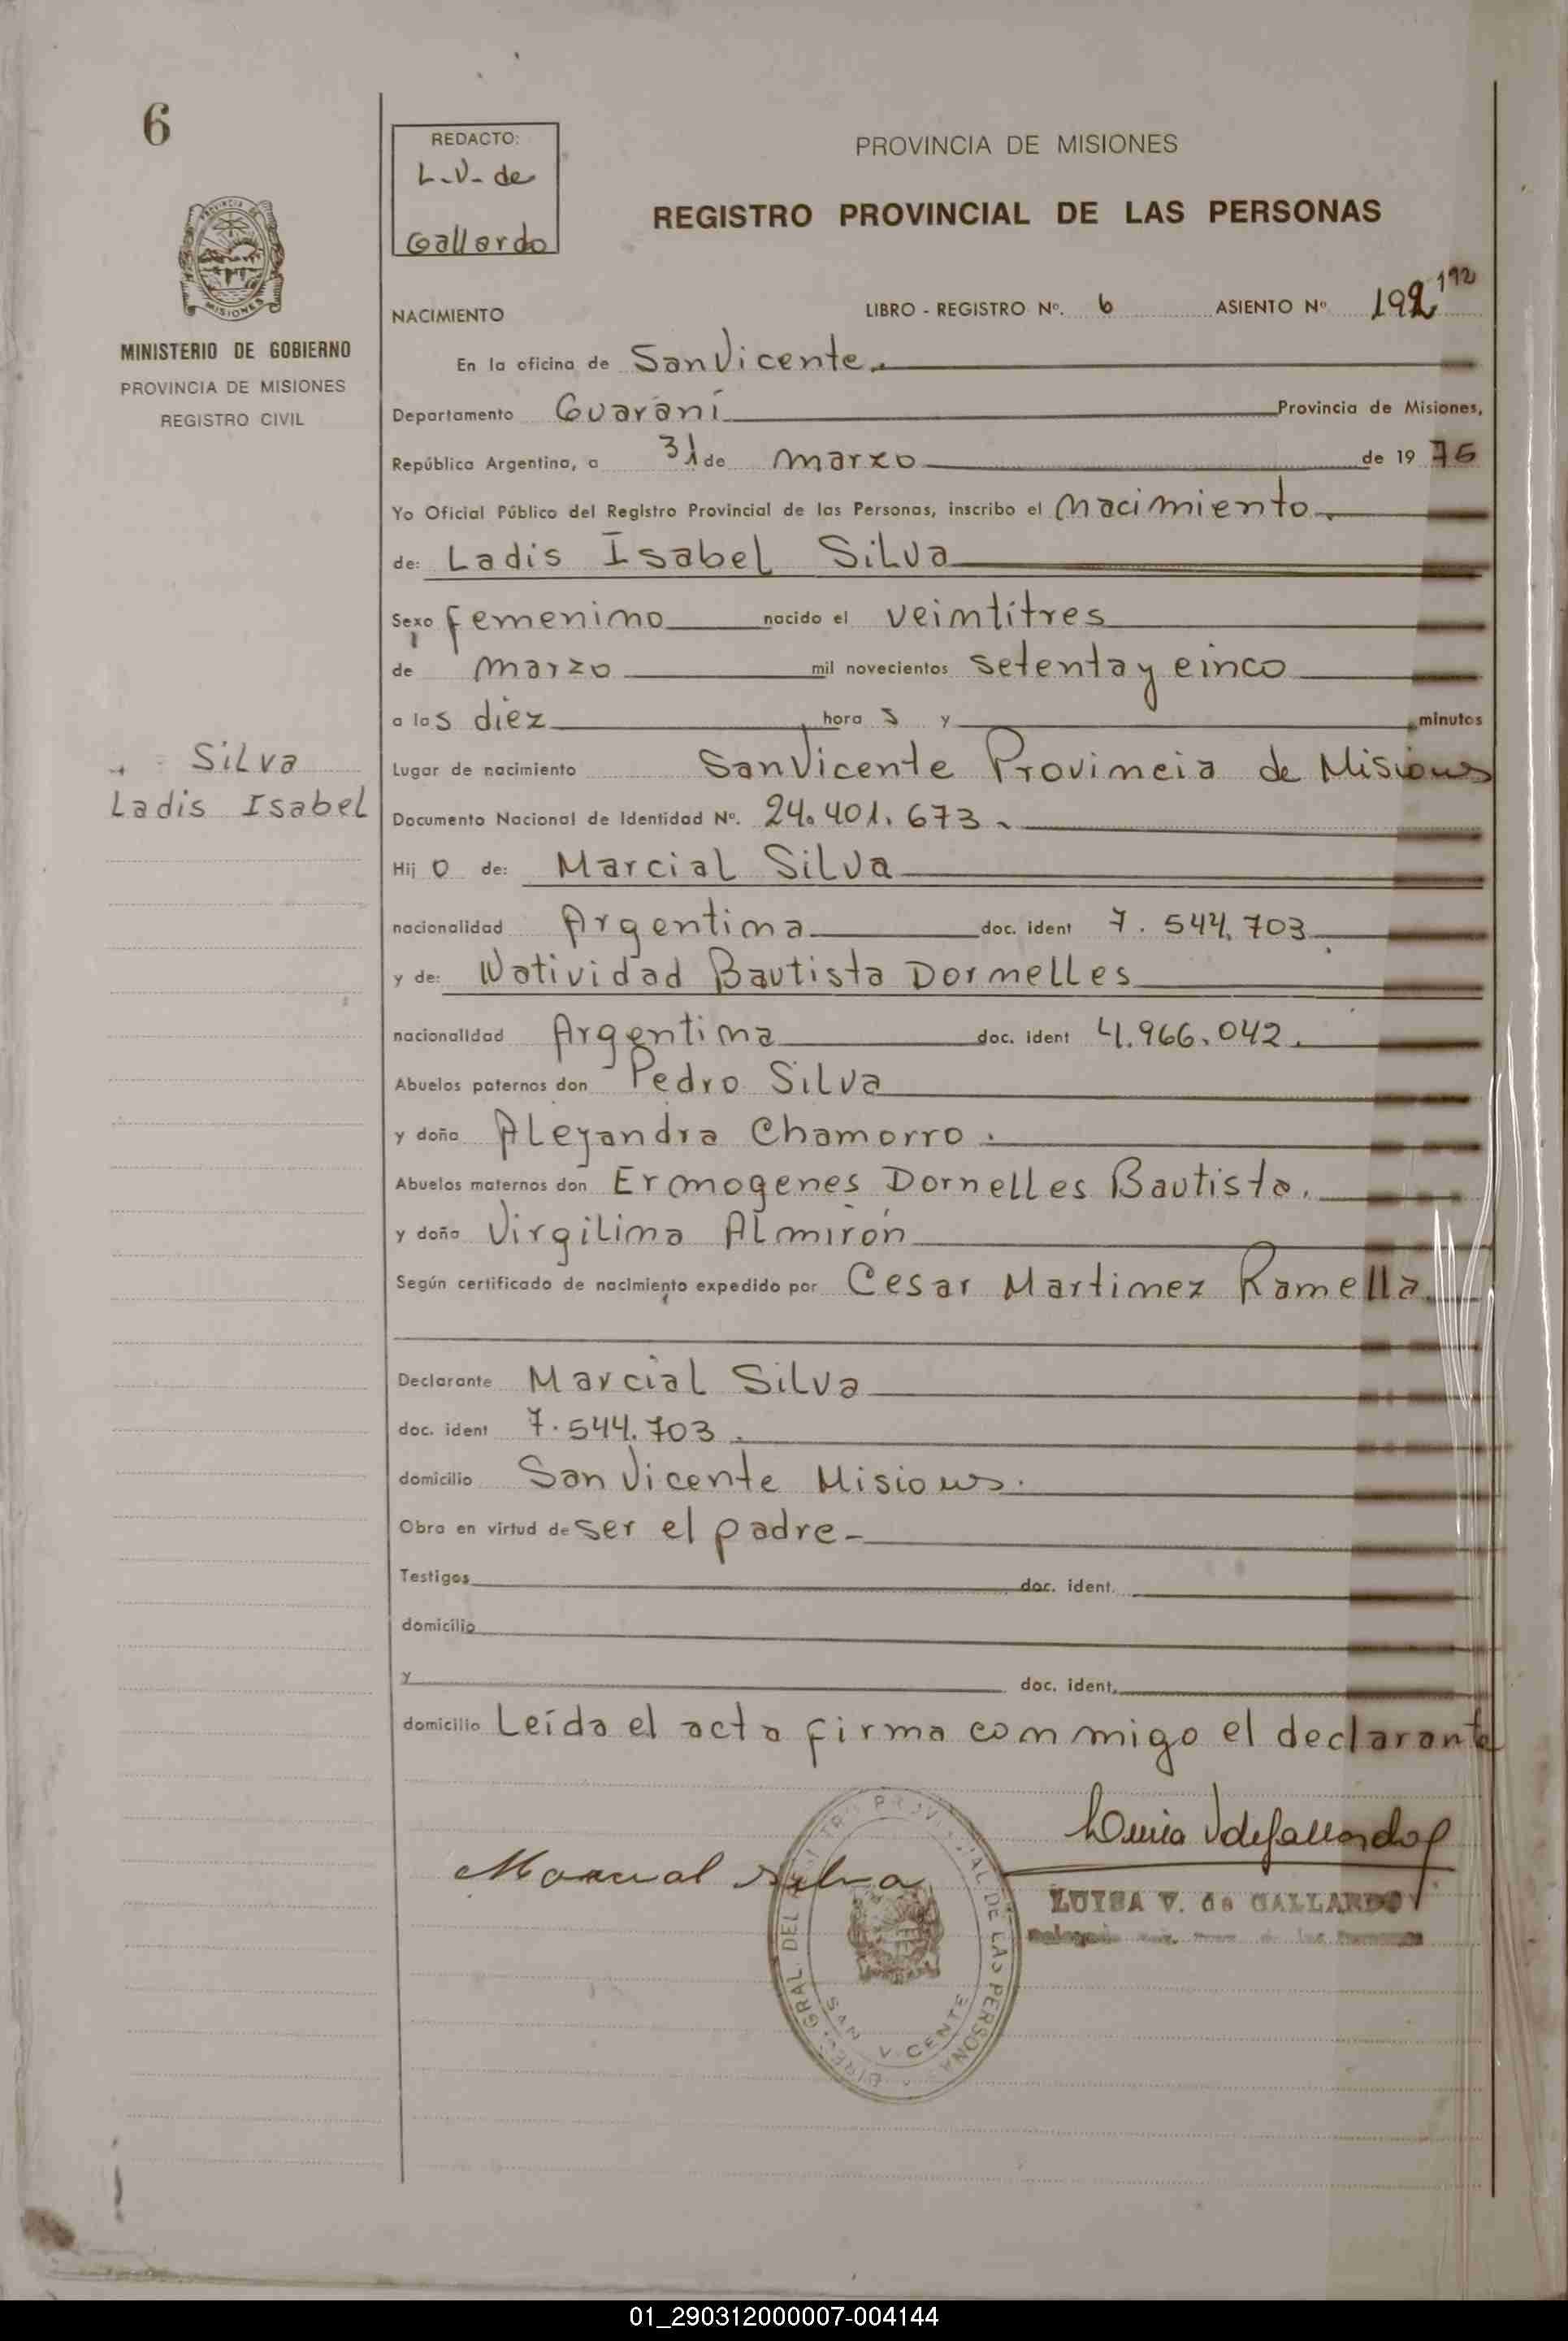 6
REDACTO:
L.V. de
Gallardo
PROVINCIA DE MISIONES
REGISTRO PROVINCIAL DE LAS PERSONAS
MINISTERIO DE GOBIERNO
PROVINCIA DE MISIONES
REGISTRO CIVIL
NACIMIENTO LIBRO - REGISTRO Nº. 6 ASIENTO Nº 192 192
En la oficina de San Vicente.
Departamento Guaraní Provincia de Misiones,
República Argentina, a 31 de marzo de 19 76
Yo Oficial Público del Registro Provincial de las Personas, inscribo el Nacimiento.
de: Ladis Isabel Silva
Sexo femenino nacido el veintitres
de marzo mil novecientos setenta y cinco
a las diez hora s y minutos
Silva
Ladis Isabel
Lugar de nacimiento San Vicente Provincia de Misiones
Documento Nacional de Identidad Nº. 24.401.673.
Hij o de: Marcial Silva
nacionalidad Argentina doc. ident 7.544.703
y de: Natividad Bautista Dornelles
nacionalidad Argentina doc. ident 4.966.042.
Abuelos paternos don Pedro Silva
y doña Alejandra Chamorro.
Abuelos maternos don Ermogenes Dornelles Bautista.
y doña Virgilina Almirón
Según certificado de nacimiento expedido por Cesar Martinez Ramella.
Declarante Marcial Silva
doc. ident 7.544.703.
domicilio San Vicente Misiones.
Obra en virtud de ser el padre-
Testigos doc. ident.
domicilio
y doc. ident.
domicilio Leída el acta firma conmigo el declarante
Marcial Silva
Luisa V de Gallardo
LUISA V. de GALLARDO
DIREC. GRAL. DEL REGISTRO PROVINCIAL DE LAS PERSONAS
SAN VICENTE
01_290312000007-004144